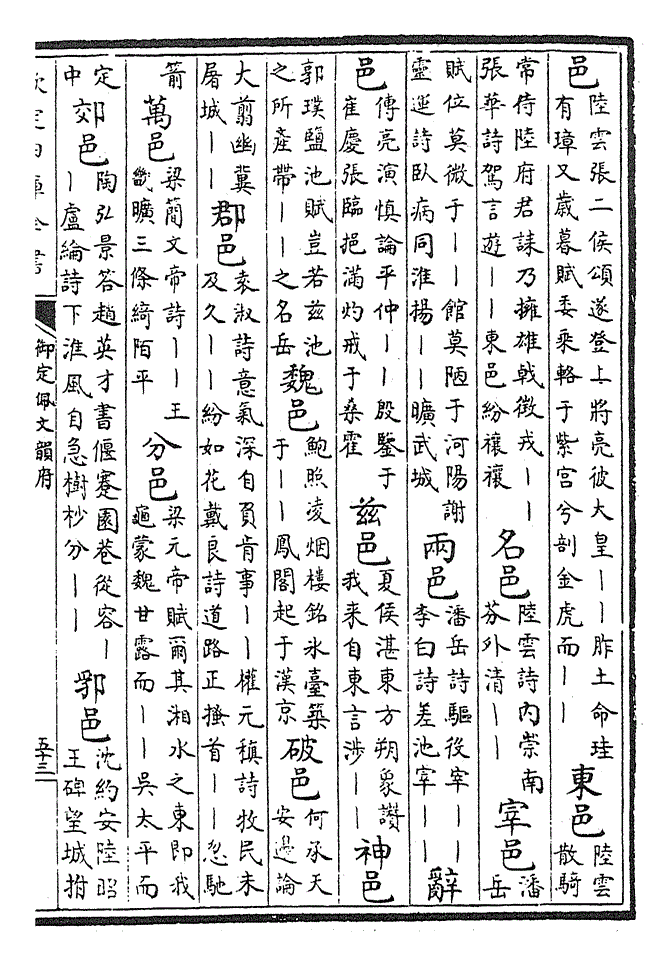 邑 陸雲張二侯頌遂登上將亮彼大皇丨丨胙土命珪
有璋又歲暮賦委乘輅于紫宮兮剖金虎而丨丨
東邑 陸雲
散騎
常侍陸府君誄乃擁雄戟徵戎丨丨
張華詩駕言遊丨丨東邑紛禳禳
名邑 陸雲詩内崇南
芬外清丨丨
宰邑 潘
岳
賦位莫微于丨丨館莫陋于河陽謝
靈運詩臥病同淮揚丨丨曠武城
兩邑 潘岳詩驅役宰丨丨
李白詩差池宰丨丨
辭
邑 傅亮演慎論平仲丨丨殷鑒于
崔慶張臨挹滿灼戒于桑霍
兹邑 夏侯湛東方朔象讚
我来自東言涉丨丨
神邑
郭璞鹽池賦豈若兹池
之所產帶丨丨之名岳
魏邑 鮑照凌烟樓銘氷臺築
于丨丨鳳閣起于漢京
破邑 何承天
安邊論
大翦幽冀
屠城丨丨
郡邑 袁淑詩意氣深自負肯事丨丨權元稹詩牧民未
及久丨丨紛如花戴良詩道路正搔首丨丨忽馳
箭
萬邑 梁簡文帝詩丨丨王
畿曠三條綺陌平
分邑 梁元帝賦爾其湘水之東即我
龜蒙魏甘露而丨丨吳太平而
定
中
郊邑 陶弘景答趙英才書偃蹇園巷從容丨
丨盧綸詩下淮風自急樹杪分丨丨
郢邑 沈約安陸昭
王碑望城拊
欽定四庫全書
御定佩文韻府
五十三